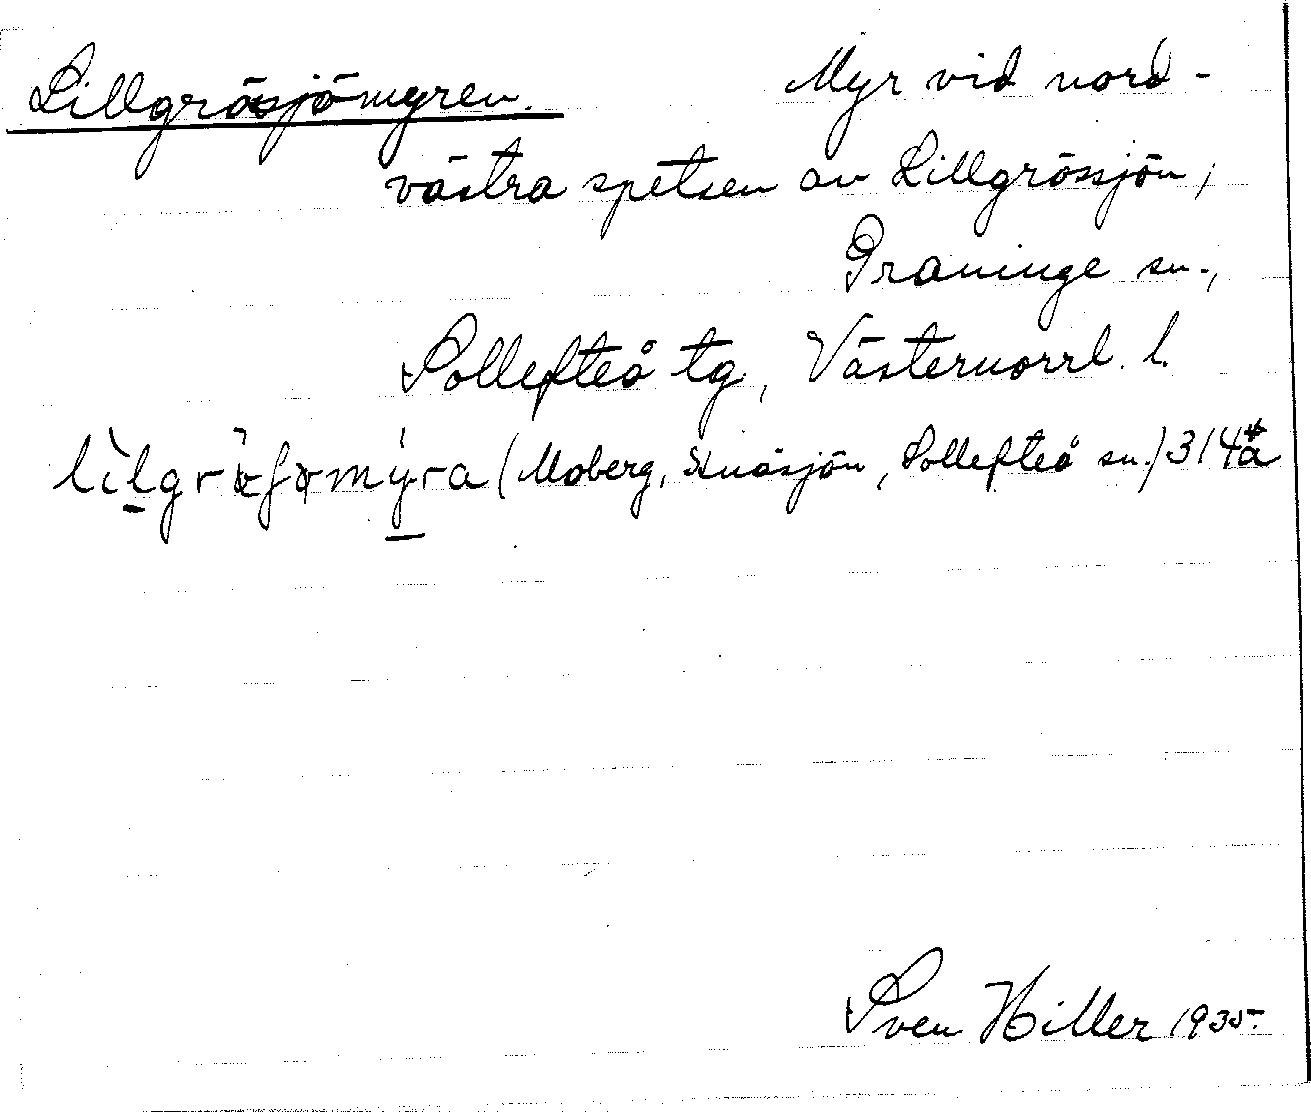 Lillgrösjömyren. Myr vid nord-
västra spetsen av Lillgrössjön,
Graninge sn.,
Sollefteå tg, Västernorrl. l.
(Moberg, Snåsjön, Sollefteå sn.) 314
Sven Hiller 1935.